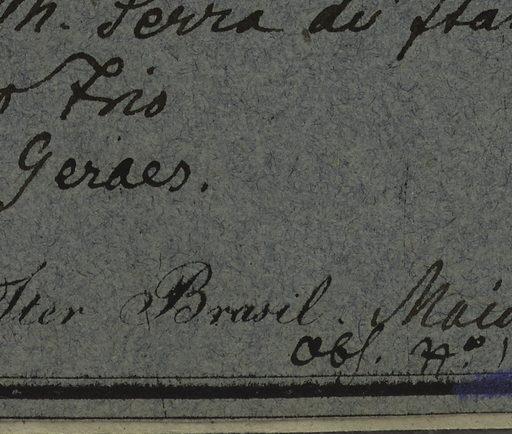 Serra de
Frio
Geraes.
Iter Brasil. Maio
Obs. N.º